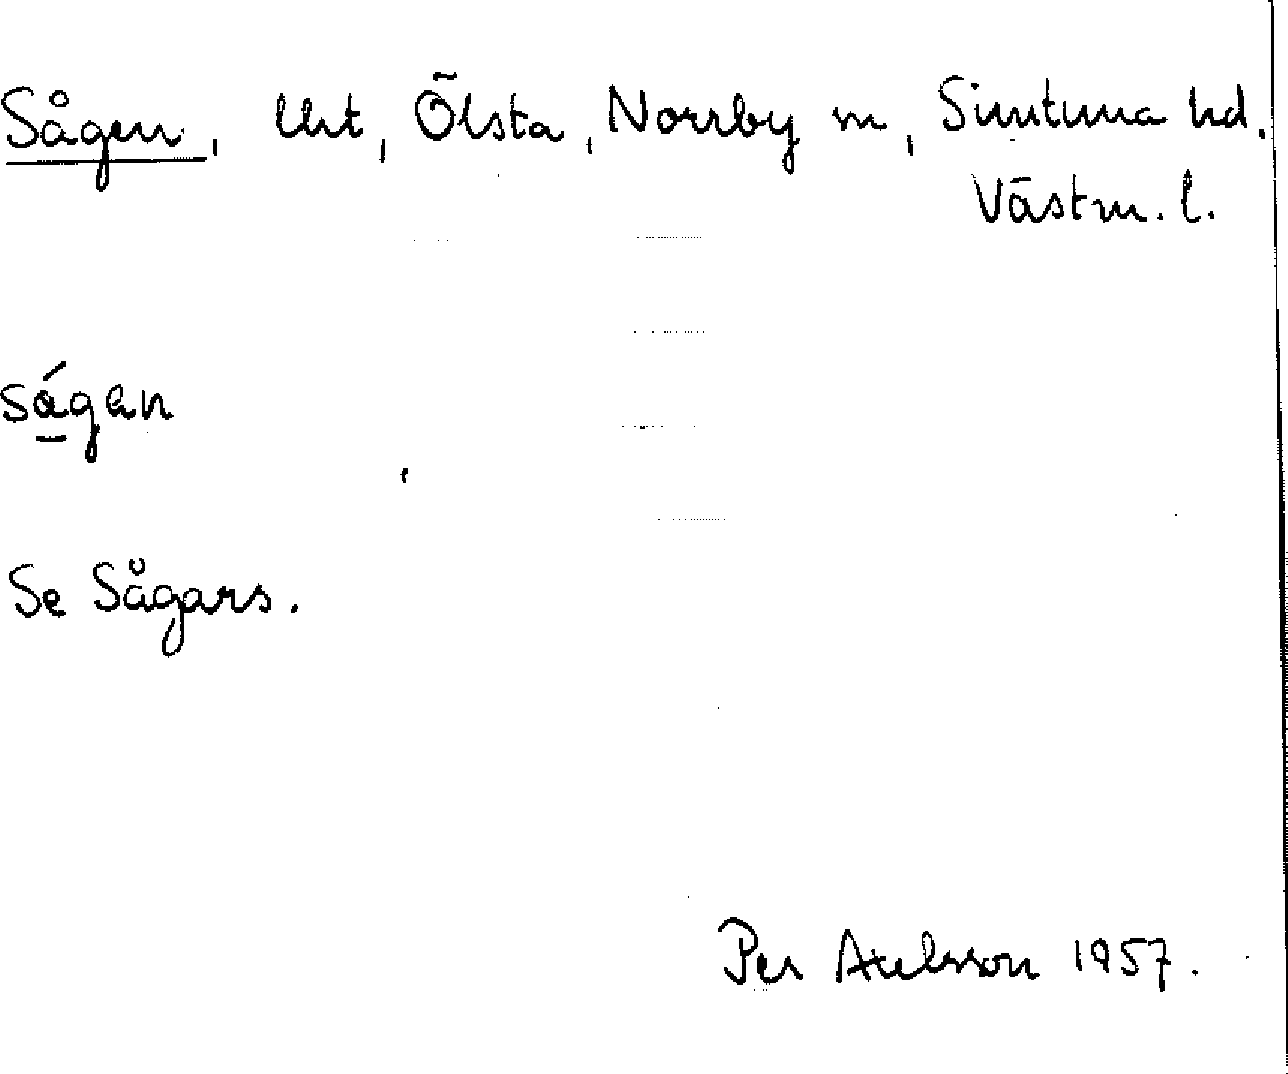 Sågen, lht, Ölsta, Norrby sn, Simtuna hd.
Västm. l.
sågen
Se Sågars.
Per Axelsson 1957.